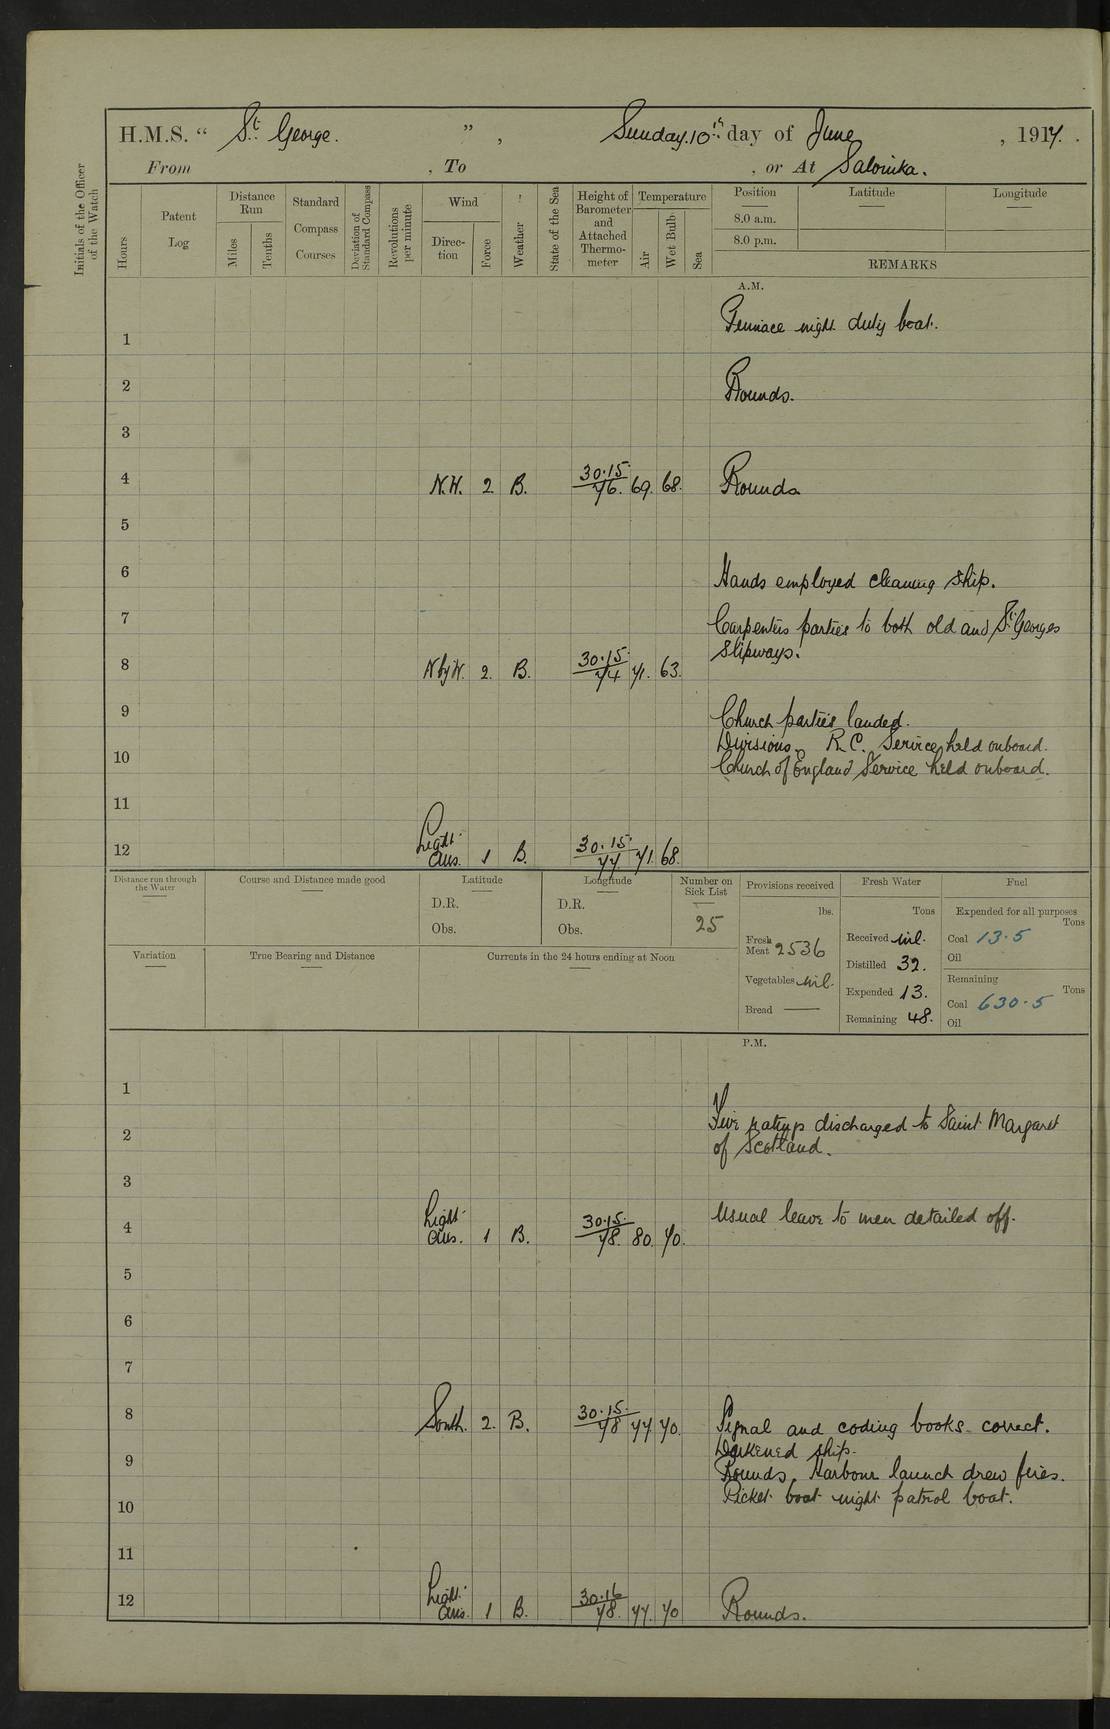 H.M.S. “ St. George. ” , Sunday. 10th day of June , 1917.
From , To , or At Salonika.
Initials of the Officer of the Watch
Hours
Patent Log
Distance Run
Miles
Tenths
Standard Compass Courses
Deviation of Standard Compass
Revolutions per minute
Wind
Direc-tion
Force
Weather
State of the Sea
Height of Barometer and Attached Thermo-meter
Temperature
Air
Wet Bulb
Sea
Position
Latitude
Longitude
8.0 a.m.
8.0 p.m.
REMARKS
A.M.
1 Pinnace night duty boat.
2 Rounds.
3
4 N.W. 2 B. 30.15 76. 69. 68. Rounds
5
6 Hands employed cleaning ship.
7 Carpenters parties to both old and St. Georges
slipways.
8 N by W. 2. B. 30.15 74 71. 63.
9 Church parties landed.
Divisions. R.C. Service held onboard.
10 Church of England Service held onboard.
11
12 Light airs. 1 B. 30.15. 77. 71. 68.
Distance run through the Water
Course and Distance made good
Latitude
Longitude
Number on Sick List
Provisions received
Fresh Water
Fuel
D.R.
Obs.
D.R.
Obs.
25
lbs.
Fresh Meat 2536
Vegetables nil.
Bread —
Tons
Received nil.
Distilled 32.
Expended 13.
Remaining 48.
Expended for all purposes
Tons
Coal 13.5
Oil
Remaining
Tons
Coal 630.5
Oil
Variation
True Bearing and Distance
Currents in the 24 hours ending at Noon
P.M.
1
2 Five ratings discharged to Saint Margaret
of Scotland.
3
4 Light airs. 1 B. 30.15. 78. 80. 70. Usual leave to men detailed off.
5
6
7
8 South. 2. B. 30.15. 78 77 70. Signal and coding books correct.
Darkened ship.
9 Rounds. Harbour launch drew fires.
10 Picket boat night patrol boat.
11
12 Light airs. 1 B. 30.16 78. 77. 70 Rounds.